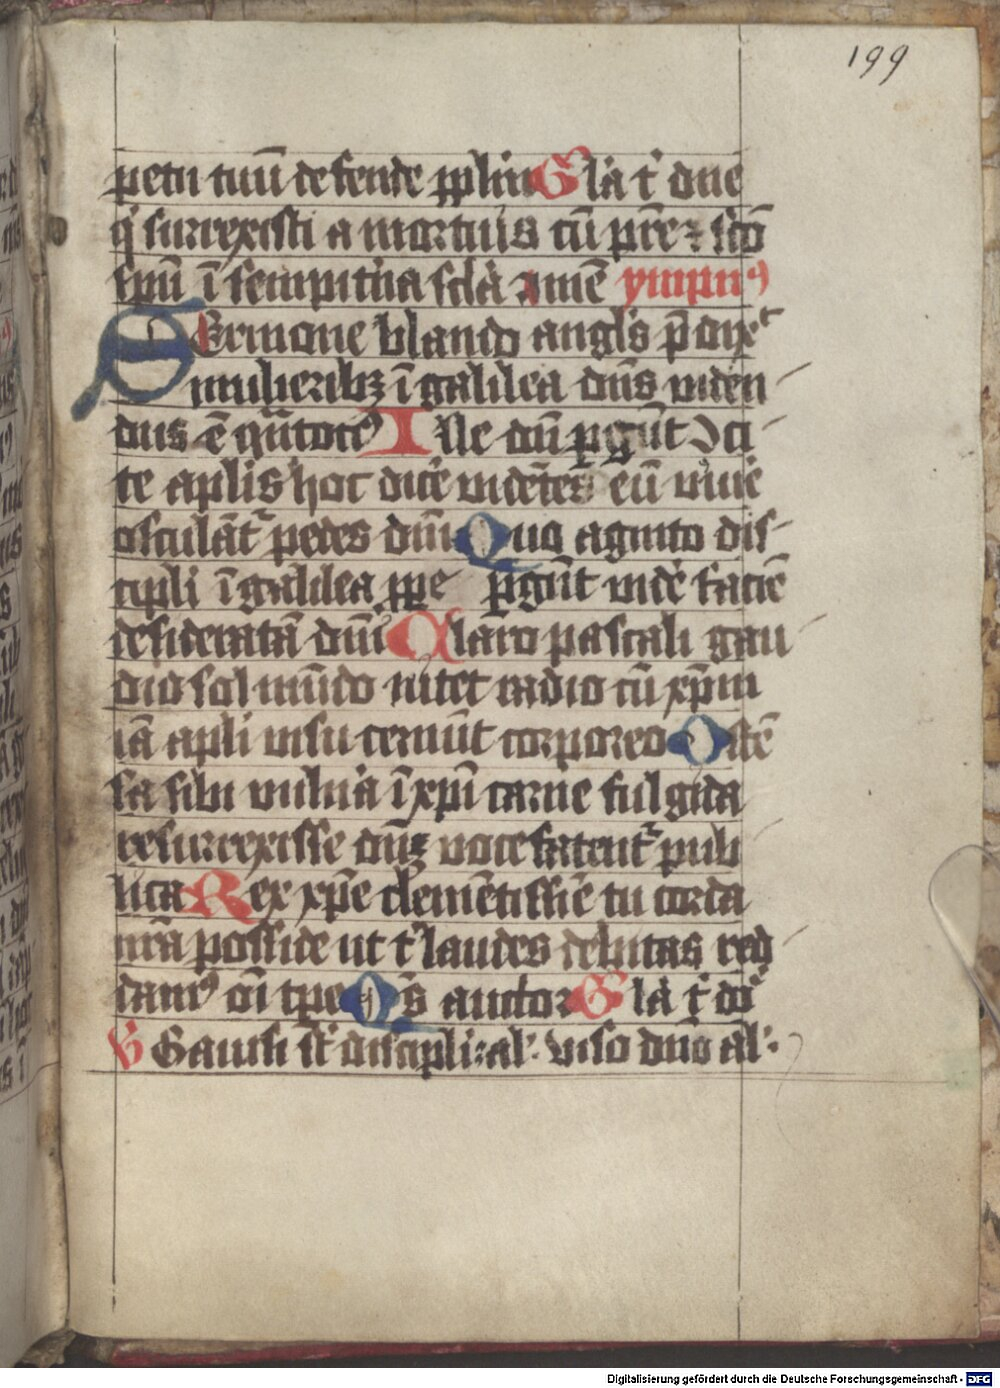 199
petu tuū defende pplm Gl̄a t' dn̄e
q' surrexisti a mortuis cū pr̄e ⁊ sc̄o
spū ī sempit'na sc̄la amē ympnꝰ
Sermone blando angl's p̄dixᵗ
mulieribꝫ ī galilea dn̄s viden
dus ē qn̄tocꝰ Ille dū p̱gūt Di
te aplis hoc dice vidētes eū viuē
osculāt' pedes dn̄i Quo agnito dis
cipli ī galilea ppe p̱gūt vidē faciē
desideratā dn̄i Claro pascali gau
dio sol mūdo nitet radio cū xp̄m
iā apli visu cernūt corporeo Ostē
sa sibi vuln'a ī xp̄i carne fulgida
resurrexisse dn̄ꝫ voce fatent' pub
lica Rex xp̄e clemētissīe tu corda
nr̄a posside ut t' laudes debitas red
damꝰ oī tp̄e Qs auctor Gl̄a t' do'
Gauisi st̄ discipli: al': viso dn̄o al':
Digitalisierung gefördert durch die Deutsche Forschungsgemeinschaft - DFG